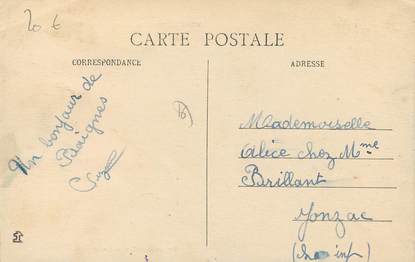 20 €
CARTE POSTALE
CORRESPONDANCE
ADRESSE
Un bonjour de
Mademoiselle
Alice chez Mme
Brillant
Jonzac
(Cha inf)